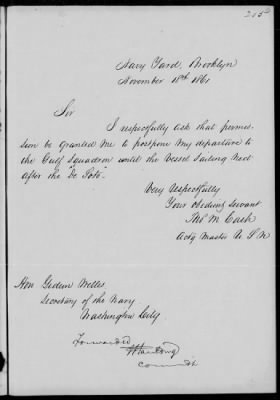 215
Navy Yard, Brooklyn
November 18th 1861
Sir
I respectfully ask that permis-
sion be granted me to postpone my departure to
the Gulf Squadron until the Vessel sailing next
after the "De Soto".
Very respectfully
Your obedient servant
M Cash
Actg Master U.S.N.
Hon Gideon Welles
Secretary of the Navy
Washington City
Forwarded
Comdt